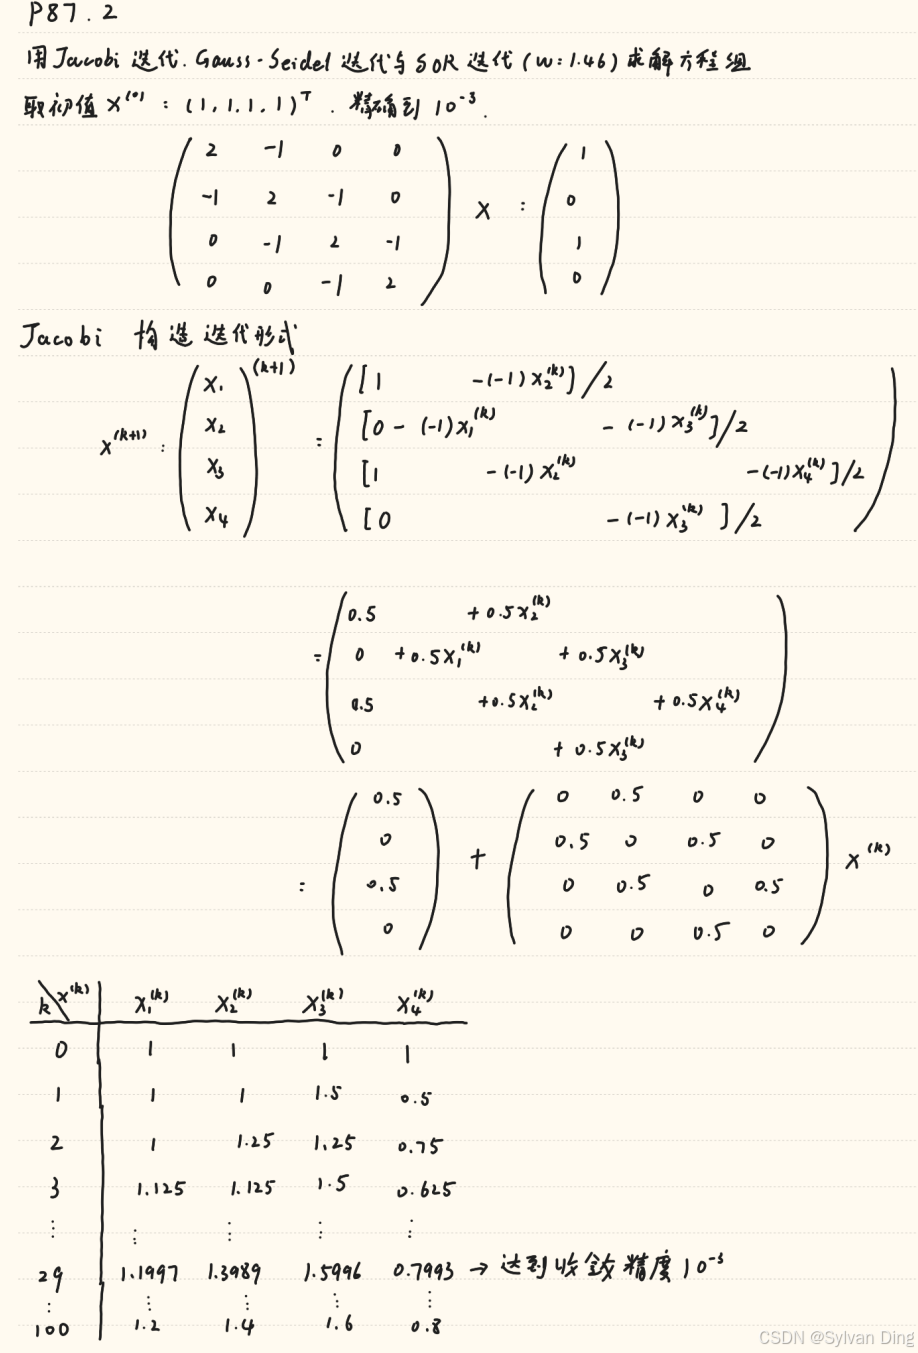 P87.2
用Jacobi迭代.Gauss-Seidel迭代与SOR迭代(w=1.46)求解方程组
取初值 X^(0) = (1,1,1,1)^T . 精确到 10^-3.
( 2 -1 0 0 ) ( 1 )
( -1 2 -1 0 ) X = ( 0 )
( 0 -1 2 -1 ) ( 1 )
( 0 0 -1 2 ) ( 0 )
Jacobi 构造迭代形式
X^(k+1) = ( X₁ X₂ X₃ X₄ )^(k+1) =
( [1 -(-1)X₂^(k)]/2
[0 -(-1)X₁^(k) -(-1)X₃^(k)]/2
[1 -(-1)X₂^(k) -(-1)X₄^(k)]/2
[0 -(-1)X₃^(k)]/2 )
= ( 0.5 +0.5X₂^(k)
0 +0.5X₁^(k) +0.5X₃^(k)
0.5 +0.5X₂^(k) +0.5X₄^(k)
0 +0.5X₃^(k) )
( 0.5 ) ( 0 0.5 0 0 )
( 0 ) + ( 0.5 0 0.5 0 ) X^(k)
= ( 0.5 ) ( 0 0.5 0 0.5 )
( 0 ) ( 0 0 0.5 0 )
k \ X^(k) X₁^(k) X₂^(k) X₃^(k) X₄^(k)
0 1 1 1 1
1 1 1 1.5 0.5
2 1 1.25 1.25 0.75
3 1.125 1.125 1.5 0.625
⋮ ⋮ ⋮ ⋮ ⋮
29 1.1997 1.3989 1.5996 0.7993 → 达到收敛精度10^-3
⋮ ⋮ ⋮ ⋮ ⋮
100 1.2 1.4 1.6 0.8
CSDN @Sylvan Ding